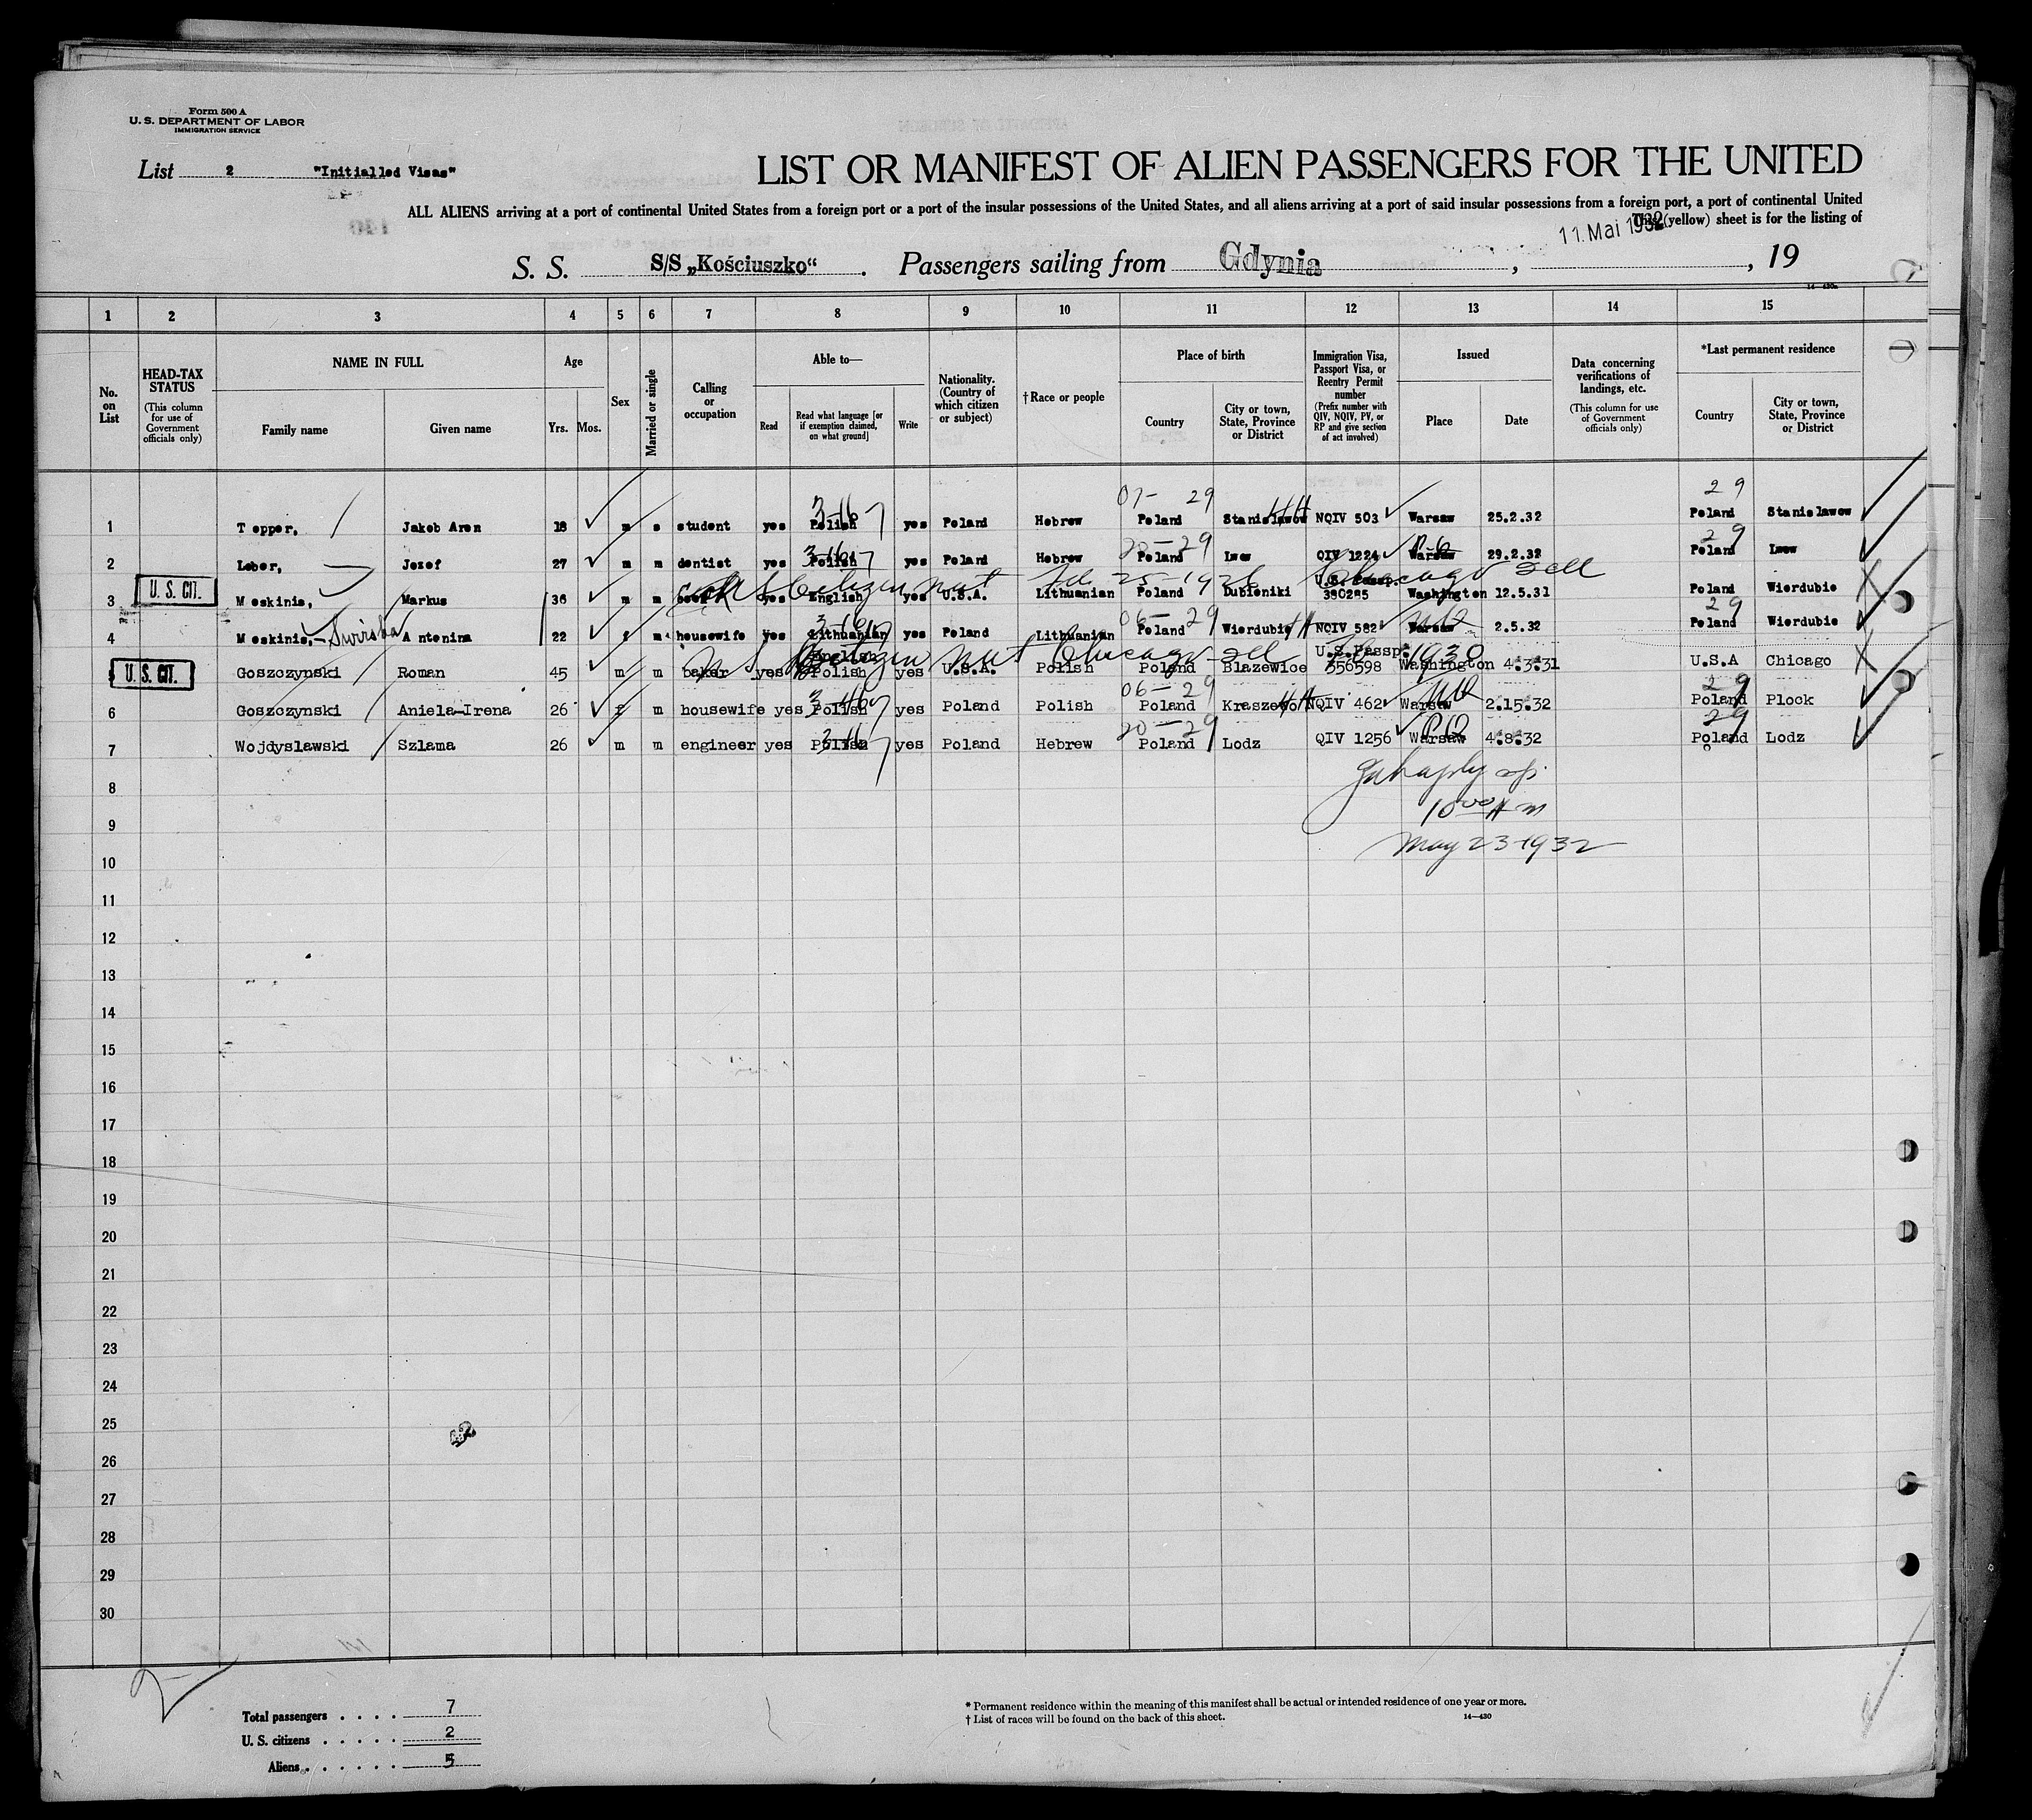 Form 500 A
U. S. DEPARTMENT OF LABOR
IMMIGRATION SERVICE
List 2 "Initialled Visas"
LIST OR MANIFEST OF ALIEN PASSENGERS FOR THE UNITED
ALL ALIENS arriving at a port of continental United States from a foreign port or a port of the insular possessions of the United States, and all aliens arriving at a port of said insular possessions from a foreign port, a port of continental United
This (yellow) sheet is for the listing of
11. Mai 1932
S. S. S/S „Kościuszko“ . Passengers sailing from Gdynia , , 19
14—430a
1 2 3 4 5 6 7 8 9 10 11 12 13 14 15
No. on List
HEAD-TAX STATUS (This column for use of Government officials only)
NAME IN FULL
Family name Given name
Age
Yrs. Mos.
Sex
Married or single
Calling or occupation
Able to—
Read Read what language [or if exemption claimed, on what ground] Write
Nationality. (Country of which citizen or subject)
†Race or people
Place of birth
Country City or town, State, Province or District
Immigration Visa, Passport Visa, or Reentry Permit number (Prefix number with QIV, NQIV, PV, or RP and give section of act involved)
Issued
Place Date
Data concerning verifications of landings, etc. (This column for use of Government officials only)
*Last permanent residence
Country City or town, State, Province or District
07- 29 29
1 Tepper, Jakob Aron 18 m s student yes Polish yes Poland Hebrew Poland Stanislawow NQIV 503 Warsaw 25.2.32 Poland Stanislawow
20-29 29
2 Leber, Jozef 27 m m dentist yes Polish yes Poland Hebrew Poland Lwow QIV 1224 Warsaw 29.2.32 Poland Lwow
U.S. CIT.
3 Meskinis, Markus 36 m m cook yes English yes U.S.A. Lithuanian Poland Dubieniki U.S. Passp. 380285 Washington 12.5.31 Poland Wierdubie
06-29 29
4 Meskinis,- Swirska Antonina 22 f m housewife yes Lithuanian yes Poland Lithuanian Poland Wierdubie NQIV 582 Warsaw 2.5.32 Poland Wierdubie
U.S. CIT.
5 Goszczynski Roman 45 m m baker yes English Polish yes U.S.A. Polish Poland Blazewice U.S.Passp. 356598 Washington 4.3.31 U.S.A Chicago
06-29 29
6 Goszczynski Aniela-Irena 26 f m housewife yes Polish yes Poland Polish Poland Kraszewo NQIV 462 Warsaw 2.15.32 Poland Plock
20-29 29
7 Wojdyslawski Szlama 26 m m engineer yes Polish yes Poland Hebrew Poland Lodz QIV 1256 Warsaw 4.8.32 Poland Lodz
8
9
May 23-1932
10
11
12
13
14
15
16
17
18
19
20
21
22
23
24
25
26
27
28
29
30
Total passengers . . . . 7
U. S. citizens . . . . . 2
Aliens . . . . . . 5
* Permanent residence within the meaning of this manifest shall be actual or intended residence of one year or more.
† List of races will be found on the back of this sheet.
14—430